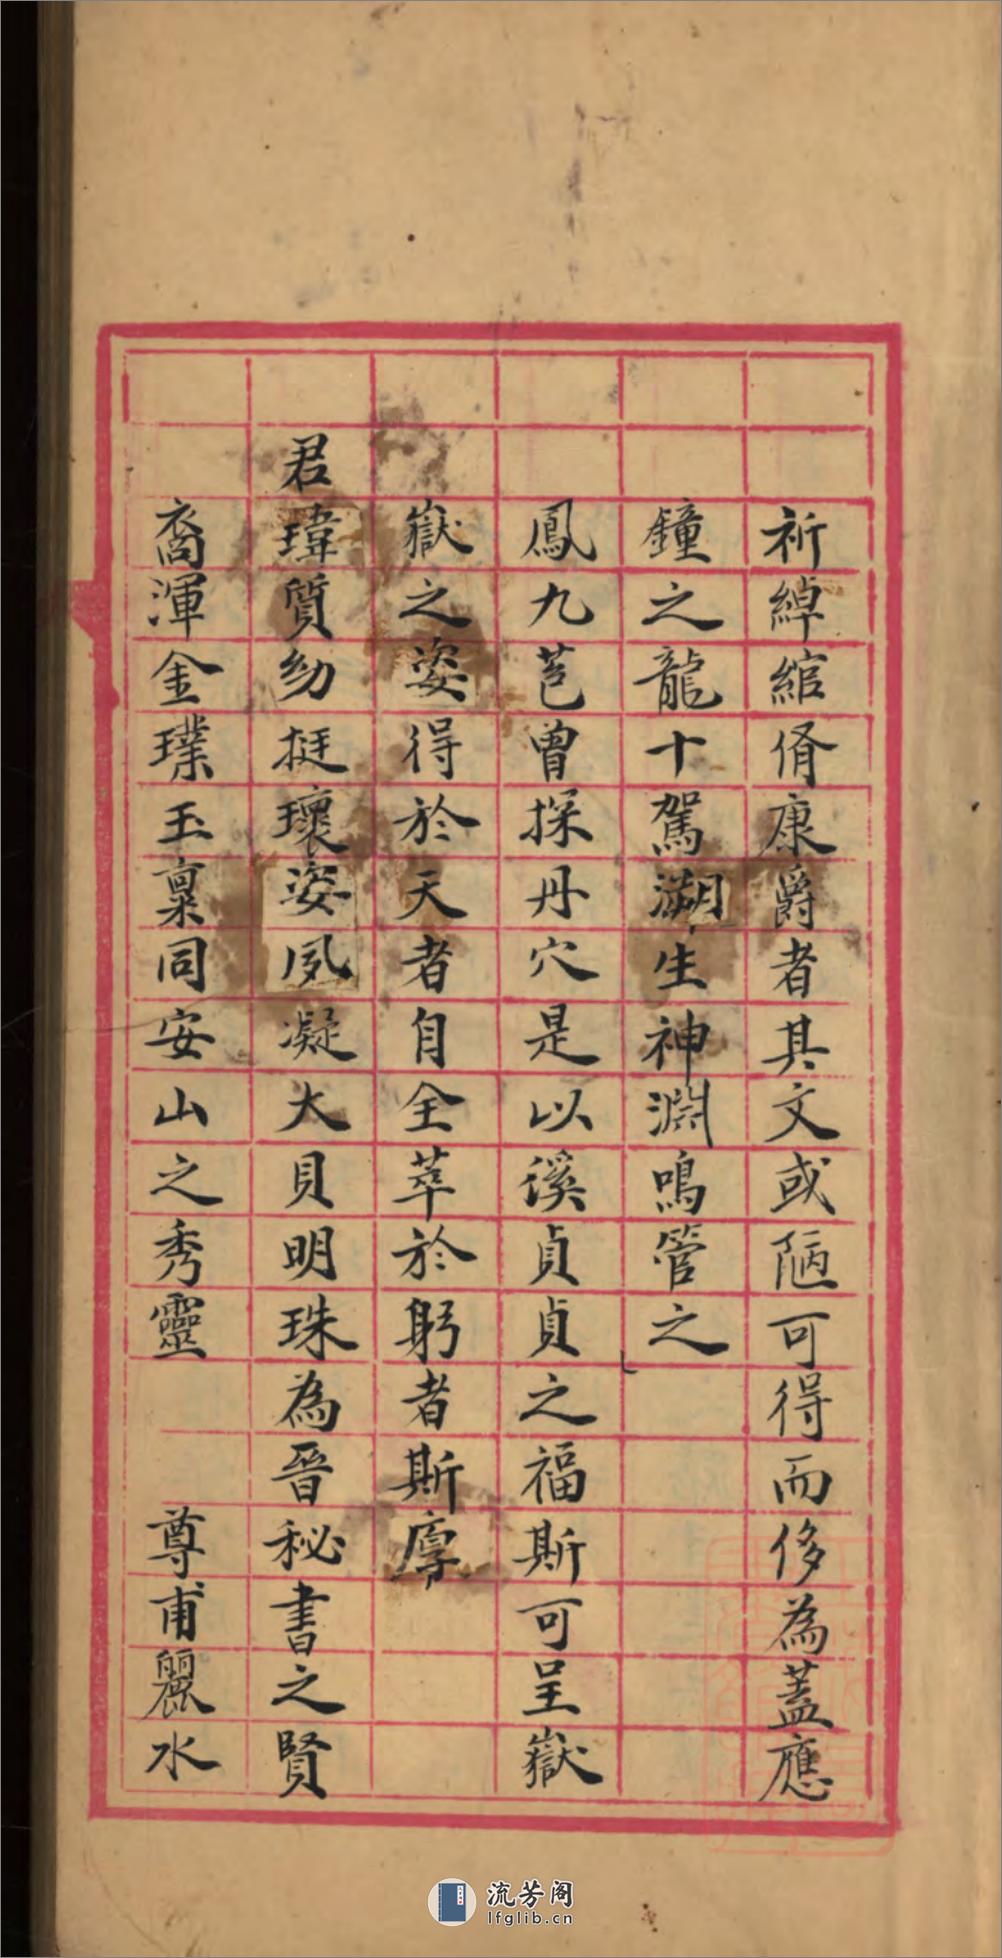 祈綽綰脩康爵者其文或陋可得而侈為蓋應
鐘之龍十駕溯生神淵鳴管之
鳳九苞曾探丹穴是以徯貞貞之福斯可呈嶽
嶽之姿得於天者自全萃於躬者斯厚
君瑋質幼挺瓌姿夙凝大貝明珠為晉秘書之賢
裔渾金璞玉稟同安山之秀靈　尊甫麗水
流芳阁
lfglib.cn